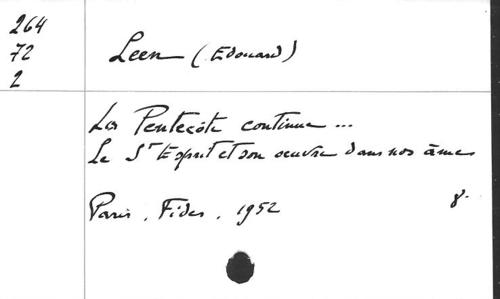 264
72
2
Leen (Edouard)
La Pentecôte continue ...
Le St Esprit et son oeuvre dans nos âmes
Paris, Fides, 1952 8.